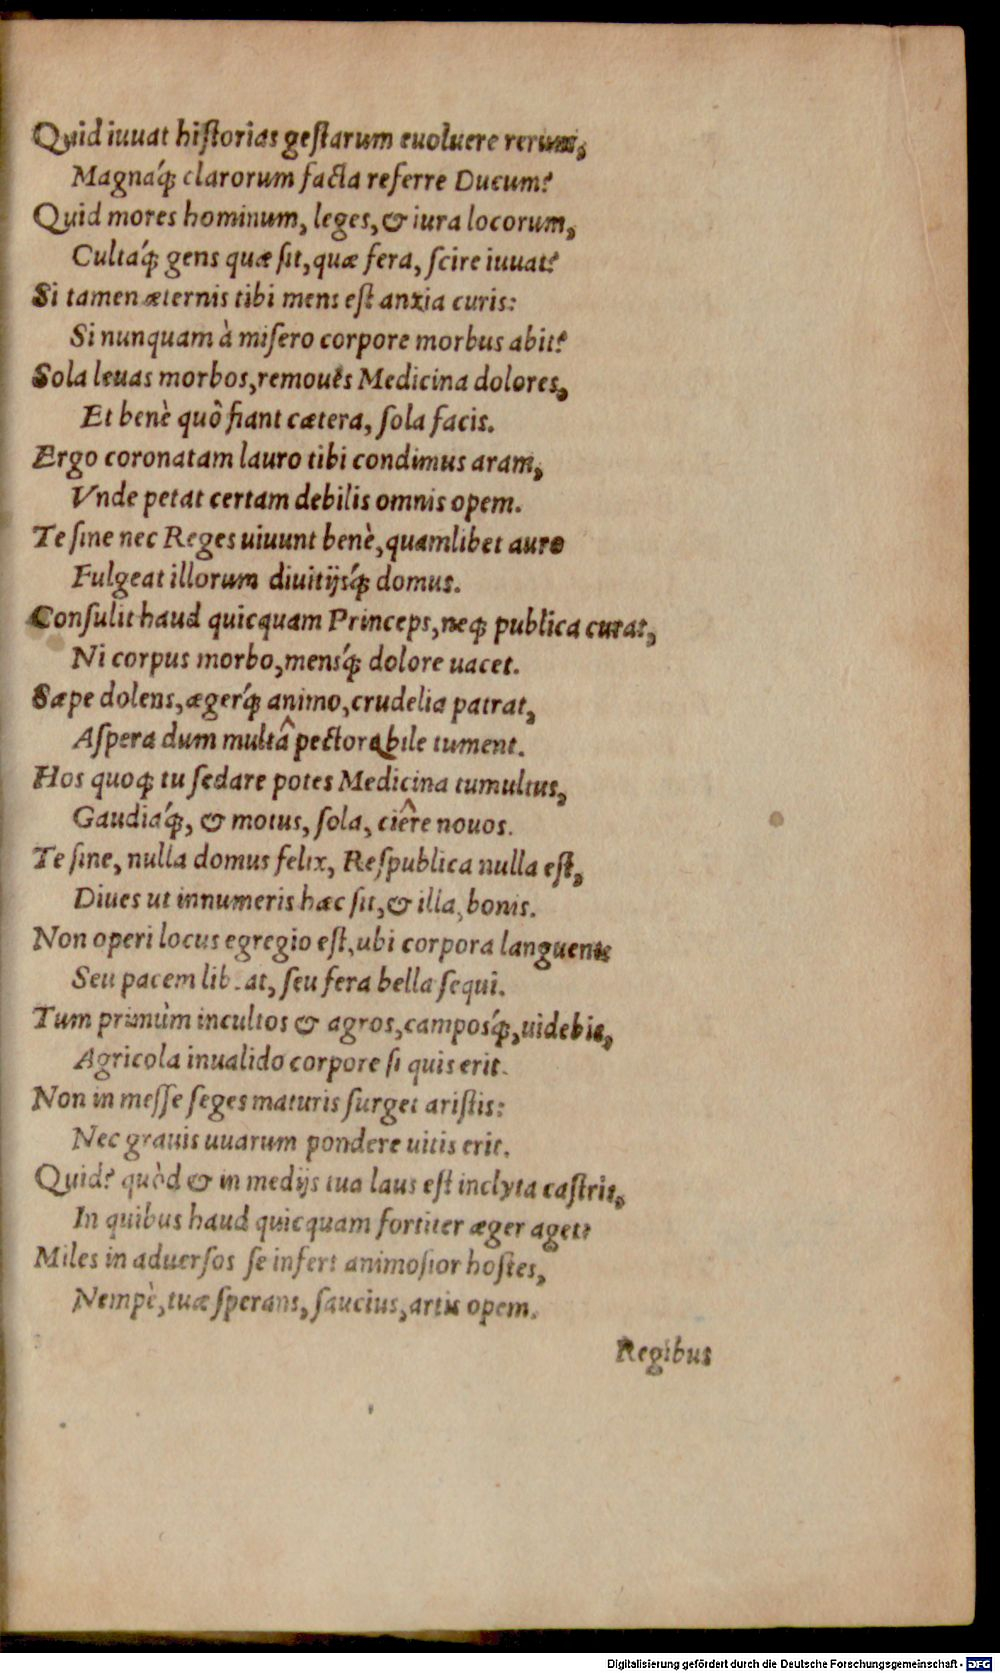 Quid iuuat hiſtorias geſtarum euoluere rerum,
Magnaq́; clarorum facta referre Ducum?
Quid mores hominum, leges, & iura locorum,
Cultaq́; gens quæ ſit, quæ fera, ſcire iuuat?
Si tamen æternis tibi mens eſt anxia curis:
Si nunquam à miſero corpore morbus abit?
Sola leuas morbos, remoues Medicina dolores,
Et benè quô fiant cætera, ſola facis.
Ergo coronatam lauro tibi condimus aram,
Vnde petat certam debilis omnis opem.
Te ſine nec Reges uiuunt benè, quamlibet auro
Fulgeat illorum diuitijsq́; domus.
Conſulit haud quicquam Princeps, neq; publica curat,
Ni corpus morbo, mensq́; dolore uacet.
Sæpe dolens, ægerq́; animo, crudelia patrat,
Aſpera dum multâ pectora bile tument.
Hos quoq; tu ſedare potes Medicina tumultus,
Gaudiaq́;, & motus, ſola, ciêre nouos.
Te ſine, nulla domus felix, Reſpublica nulla eſt,
Diues ut innumeris hæc ſit, & illa, bonis.
Non operi locus egregio eſt, ubi corpora languent
Seu pacem lib at, ſeu fera bella ſequi.
Tum primùm incultos & agros, camposq́;, uidebis,
Agricola inualido corpore ſi quis erit.
Non in meſſe ſeges maturis ſurget ariſtis:
Nec grauis uuarum pondere uitis erit.
Quid? quòd & in medijs tua laus eſt inclyta caſtris,
In quibus haud quicquam fortiter æger aget?
Miles in aduerſos ſe infert animoſior hoſtes,
Nempè, tuæ ſperans, ſaucius, artis opem.
Regibus
Digitalisierung gefördert durch die Deutsche Forschungsgemeinschaft - DFG